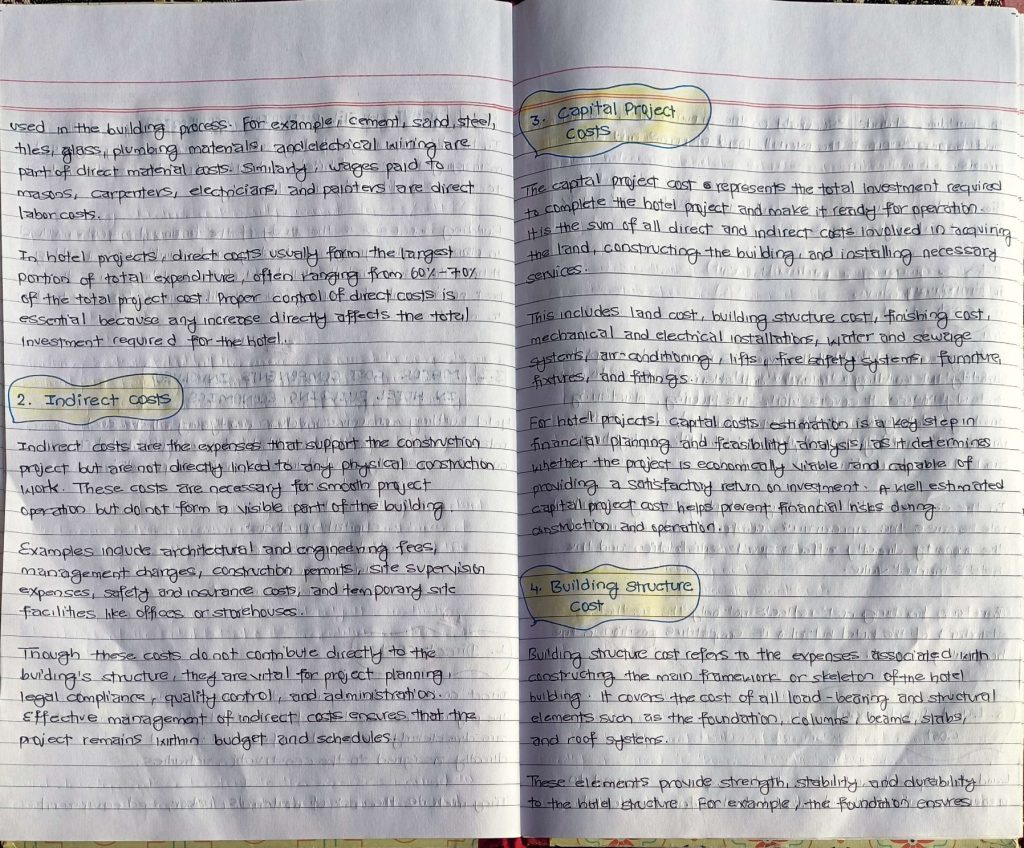 used in the building process. For example, cement, sand, steel,
tiles, glass, plumbing materials, and electrical wiring are
part of direct material costs. Similarly, wages paid to
masons, carpenters, electricians, and painters are direct
labor costs.
In hotel projects, direct costs usually form the largest
portion of total expenditure, often ranging from 60%-70%
of the total project cost. Proper control of direct costs is
essential because any increase directly affects the total
investment required for the hotel.
2. Indirect costs
Indirect costs are the expenses that support the construction
project but are not directly linked to any physical construction
work. These costs are necessary for smooth project
operation but do not form a visible part of the building.
Examples include architectural and engineering fees,
management charges, construction permits, site supervision
expenses, safety and insurance costs, and temporary site
facilities like offices or storehouses.
Though these costs do not contribute directly to the
building's structure, they are vital for project planning,
legal compliance, quality control, and administration.
Effective management of indirect costs ensures that the
project remains within budget and schedules.
3. Capital Project
Costs
The capital project cost represents the total investment required
to complete the hotel project and make it ready for operation.
It is the sum of all direct and indirect costs involved in acquiring
the land, constructing the building, and installing necessary
services.
This includes land cost, building structure cost, finishing cost,
mechanical and electrical installations, water and sewage
systems, air-conditioning, lifts, fire safety systems, furniture,
fixtures, and fittings.
For hotel projects, capital costs estimation is a key step in
financial planning and feasibility analysis, as it determines
whether the project is economically viable and capable of
providing a satisfactory return on investment. A well estimated
capital project cost helps prevent financial risks during
construction and operation.
4. Building structure
cost
Building structure cost refers to the expenses associated with
constructing the main framework or skeleton of the hotel
building. It covers the cost of all load-bearing and structural
elements such as the foundation, columns, beams, slabs,
and roof systems.
These elements provide strength, stability and durability
to the hotel structure. For example, the foundation ensures